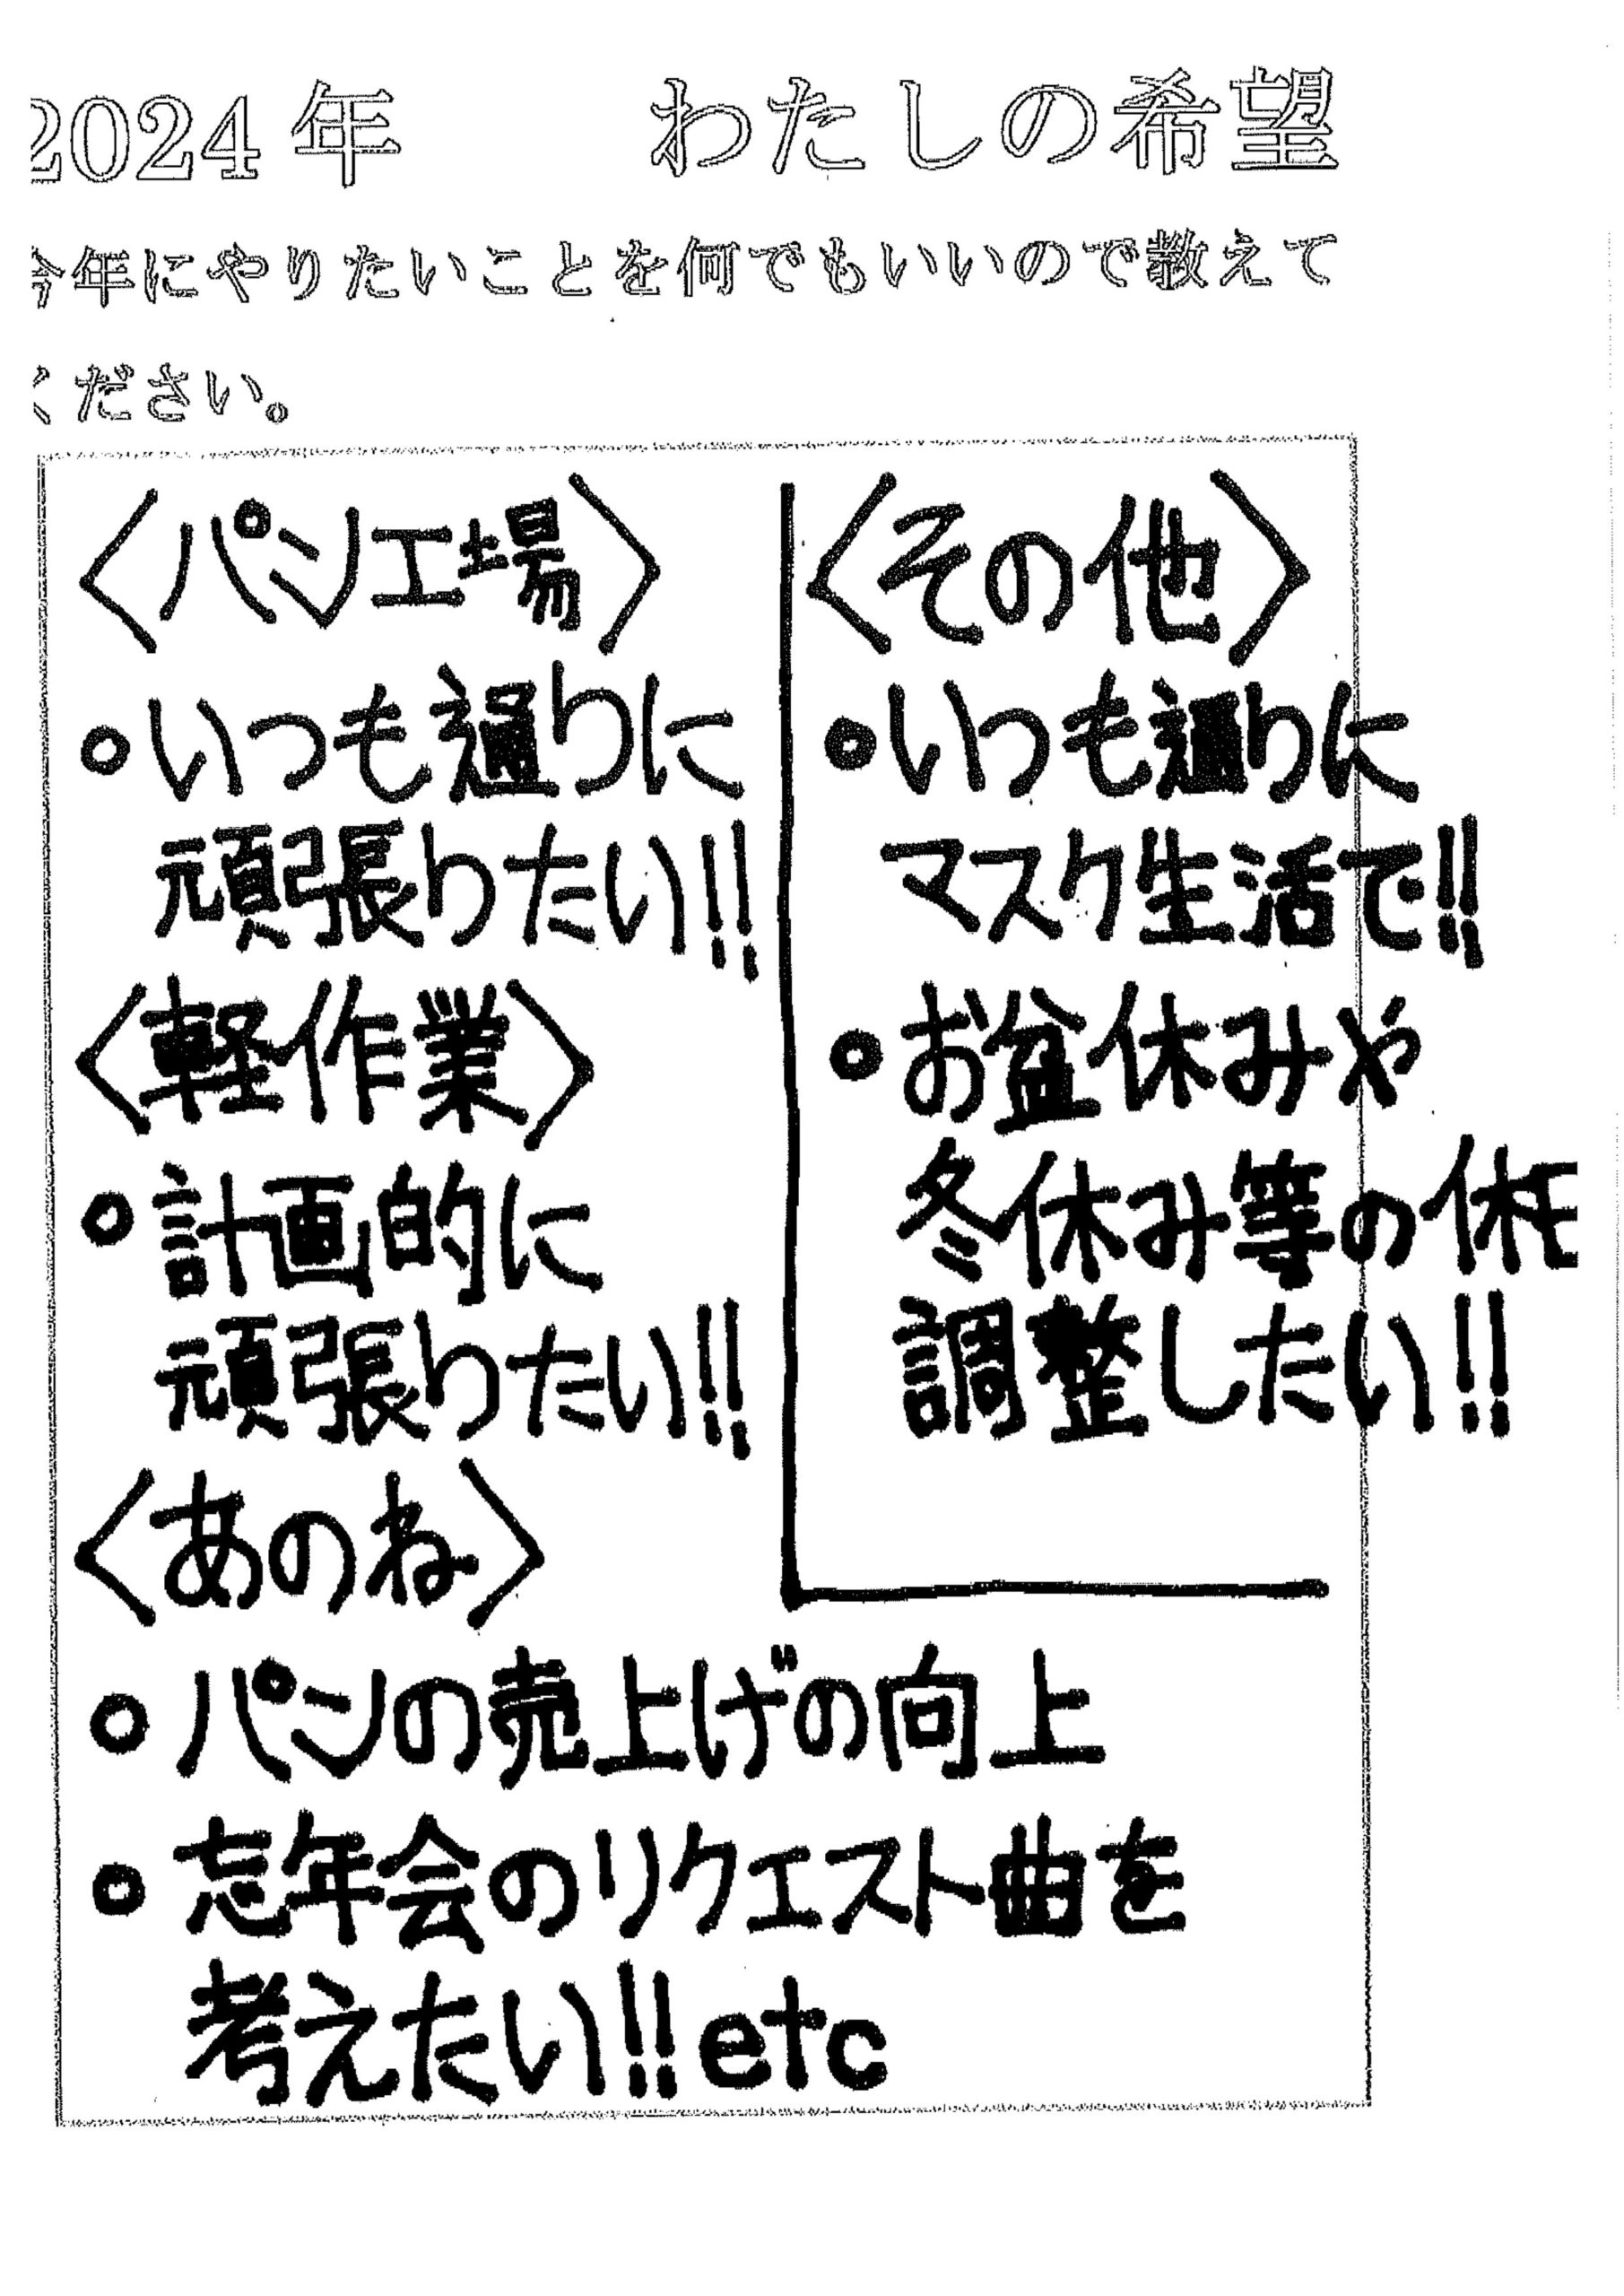 2024年 わたしの希望
今年にやりたいことを何でもいいので教えて
ください。
〈パン工場〉
○いつも通りに
頑張りたい!!
〈軽作業〉
○計画的に
頑張りたい!!
〈あのね〉
○パンの売上げの向上
○忘年会のリクエスト曲を
考えたい!!etc
〈その他〉
○いつも通りに
マスク生活で!!
○お盆休みや
冬休み等の休
調整したい!!